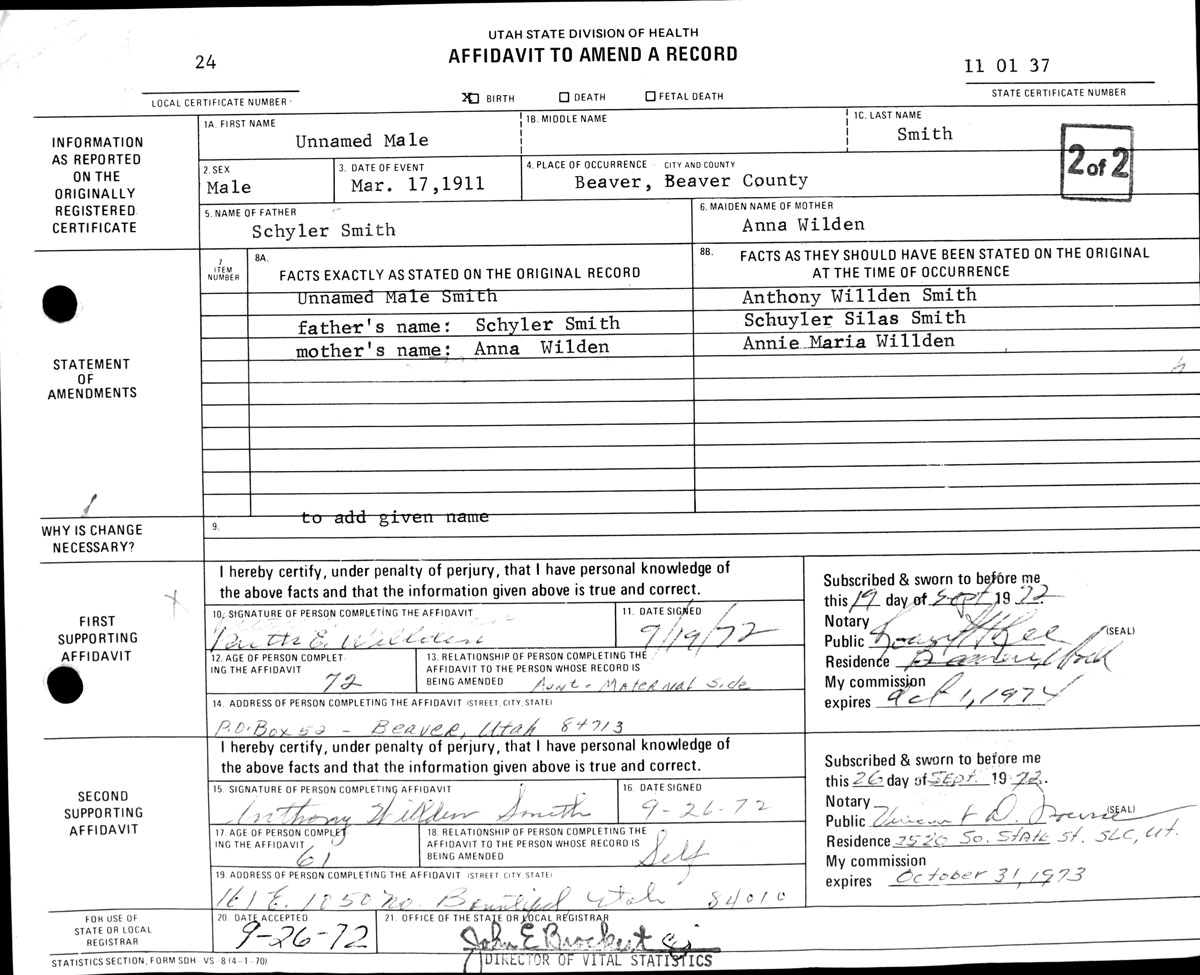 UTAH STATE DIVISION OF HEALTH
AFFIDAVIT TO AMEND A RECORD
24
11 01 37
LOCAL CERTIFICATE NUMBER
X BIRTH DEATH FETAL DEATH
STATE CERTIFICATE NUMBER
INFORMATION AS REPORTED ON THE ORIGINALLY REGISTERED CERTIFICATE
1A. FIRST NAME
Unnamed Male
1B. MIDDLE NAME
1C. LAST NAME
Smith
2 of 2
2. SEX
Male
3. DATE OF EVENT
Mar. 17,1911
4. PLACE OF OCCURRENCE CITY AND COUNTY
Beaver, Beaver County
5. NAME OF FATHER
Schyler Smith
6. MAIDEN NAME OF MOTHER
Anna Wilden
STATEMENT OF AMENDMENTS
7 ITEM NUMBER
8A.
FACTS EXACTLY AS STATED ON THE ORIGINAL RECORD
8B. FACTS AS THEY SHOULD HAVE BEEN STATED ON THE ORIGINAL
AT THE TIME OF OCCURRENCE
Unnamed Male Smith
Anthony Willden Smith
father's name: Schyler Smith
Schuyler Silas Smith
mother's name: Anna Wilden
Annie Maria Willden
WHY IS CHANGE NECESSARY?
9.
to add given name
FIRST SUPPORTING AFFIDAVIT
I hereby certify, under penalty of perjury, that I have personal knowledge of
the above facts and that the information given above is true and correct.
10. SIGNATURE OF PERSON COMPLETING THE AFFIDAVIT
Ruth E. Willden
11. DATE SIGNED
9/19/72
12. AGE OF PERSON COMPLETING THE AFFIDAVIT
72
13. RELATIONSHIP OF PERSON COMPLETING THE
AFFIDAVIT TO THE PERSON WHOSE RECORD IS
BEING AMENDED Aunt - Maternal Side
14. ADDRESS OF PERSON COMPLETING THE AFFIDAVIT (STREET, CITY, STATE)
P.O. Box 52 - Beaver, Utah 84713
Subscribed & sworn to before me
this 19 day of Sept 1972.
Notary
Public (SEAL)
Residence
My commission
expires Oct 1, 1974
SECOND SUPPORTING AFFIDAVIT
I hereby certify, under penalty of perjury, that I have personal knowledge of
the above facts and that the information given above is true and correct.
15. SIGNATURE OF PERSON COMPLETING AFFIDAVIT
Anthony Willden Smith
16. DATE SIGNED
9-26-72
17. AGE OF PERSON COMPLETING THE AFFIDAVIT
61
18. RELATIONSHIP OF PERSON COMPLETING THE
AFFIDAVIT TO THE PERSON WHOSE RECORD IS
BEING AMENDED Self
19. ADDRESS OF PERSON COMPLETING THE AFFIDAVIT (STREET, CITY, STATE)
161 E. 1050 No. Bountiful Utah 84010
Subscribed & sworn to before me
this 26 day of Sept. 1972.
Notary
Public Vincent D. (SEAL)
Residence 2520 So. State St. SLC, Ut.
My commission
expires October 31, 1973
FOR USE OF STATE OR LOCAL REGISTRAR
20. DATE ACCEPTED
9-26-72
21. OFFICE OF THE STATE OR LOCAL REGISTRAR
John E Brockert
DIRECTOR OF VITAL STATISTICS
STATISTICS SECTION, FORM SDH - VS - 8 (4-1-70)